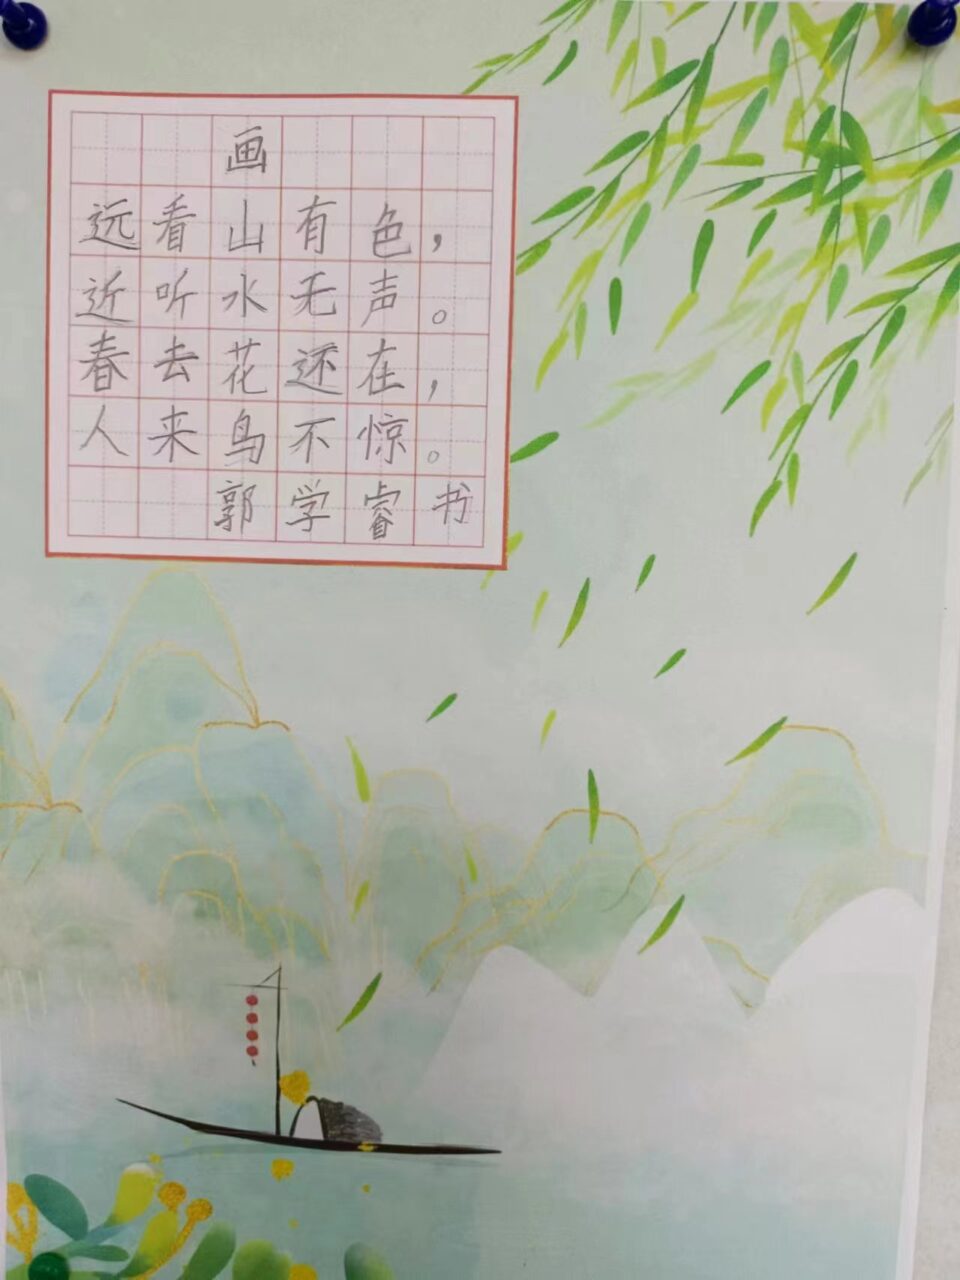 画
远看山有色，
近听水无声。
春去花还在，
人来鸟不惊。
郭学睿书